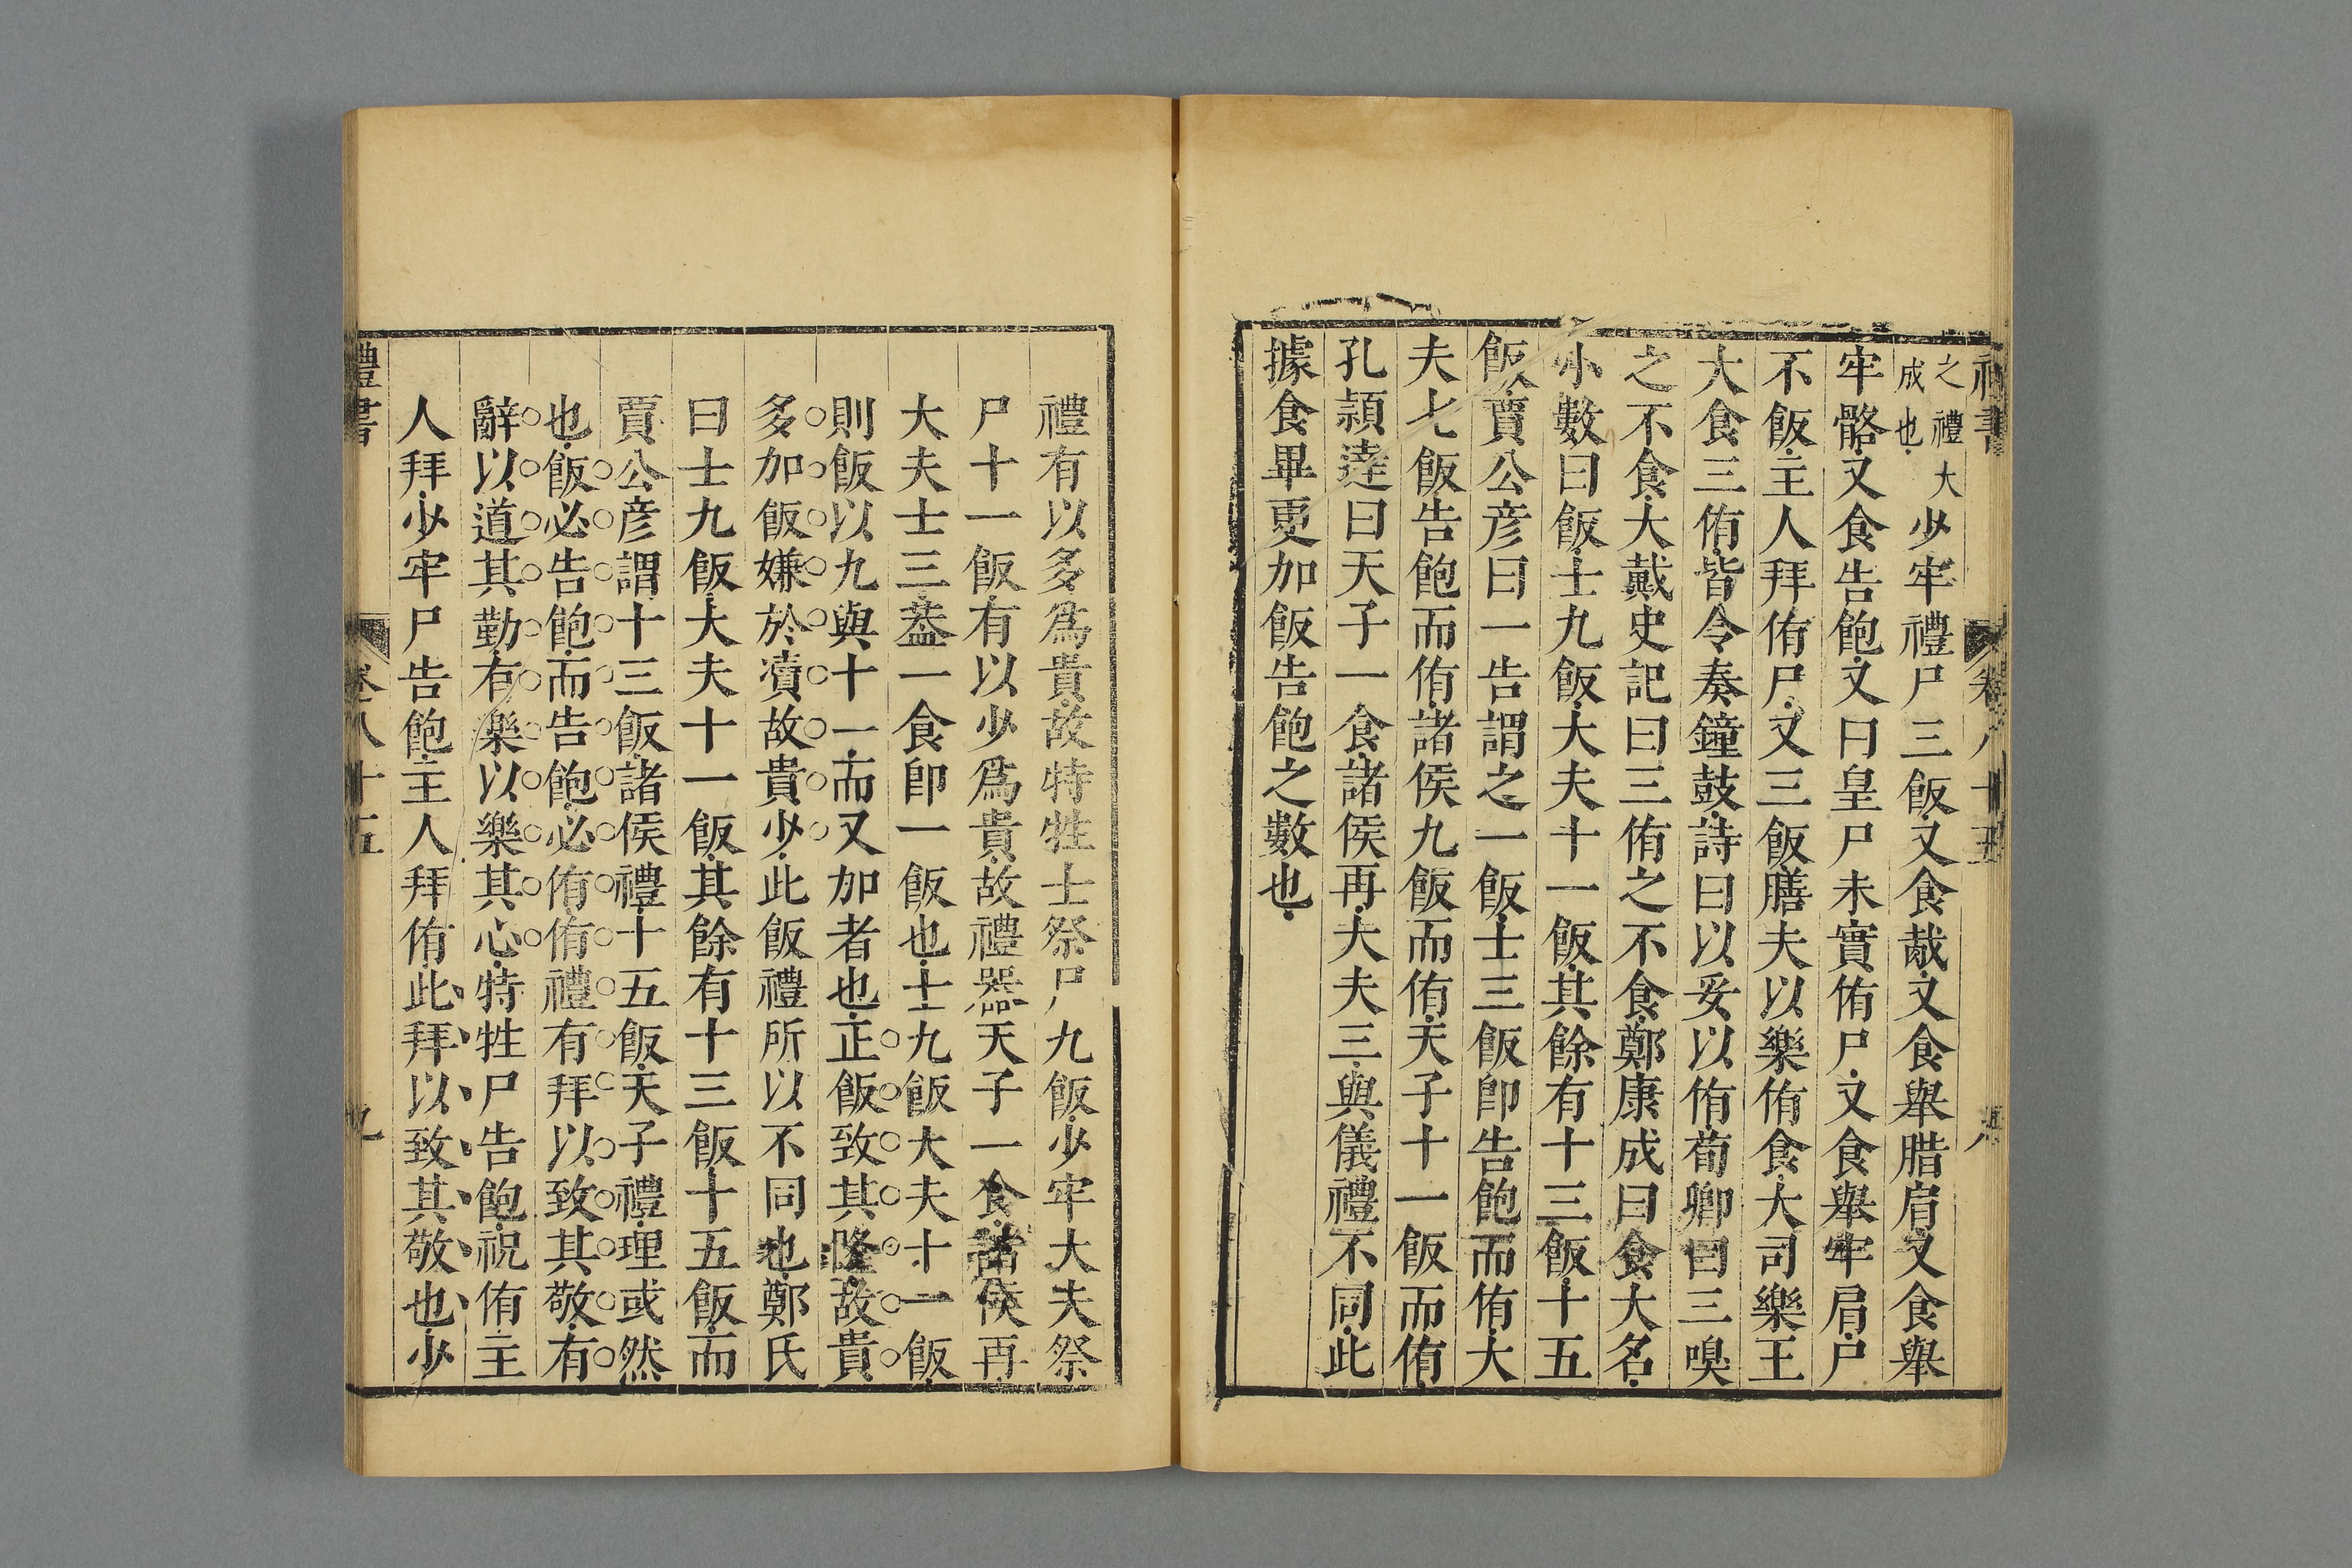 禮書 卷八十五 八
之禮大成也少牢禮尸三飯又食胾又食舉腊肩又食舉
牢骼又食告飽又曰皇尸未實侑尸又食舉牢肩尸
不飯主人拜侑尸又三飯膳夫以樂侑食大司樂王
大食三侑皆令奏鐘鼓詩曰以妥以侑荀卿曰三嗅
之不食大戴史記曰三侑之不食鄭康成曰食大名
小數曰飯士九飯大夫十一飯其餘有十三飯十五
飯賈公彦曰一告謂之一飯士三飯卽告飽而侑大
夫七飯告飽而侑諸侯九飯而侑天子十一飯而侑
孔頴逹曰天子一食諸侯再夫夫三與儀禮不同此
據食畢更加飯告飽之數也
禮有以多爲貴故特牲士祭尸九飯少牢大夫祭
尸十一飯有以少爲貴故禮器天子一食諸侯再
大夫士三葢一食卽一飯也士九飯大夫十一飯
則飯以九與十一而又加者也正飯致其隆故貴
多加飯嫌於瀆故貴少此飯禮所以不同也鄭氏
曰士九飯大夫十一飯其餘有十三飯十五飯而
賈公彦謂十三飯諸侯禮十五飯天子禮理或然
也飯必告飽而告飽必侑侑禮有拜以致其敬有
辭以道其勤有樂以樂其心特牲尸告飽祝侑主
人拜少牢尸告飽主人拜侑此拜以致其敬也少
禮書 卷八十五 九